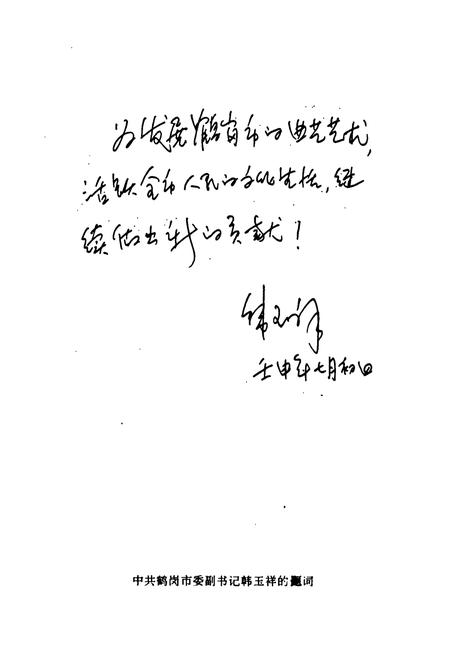 为发展鹤岗市的曲艺艺术,
活跃全市人民的文化生活,继
续做出新的贡献!
韩玉祥
壬申年七月初四
中共鹤岗市委副书记韩玉祥的题词